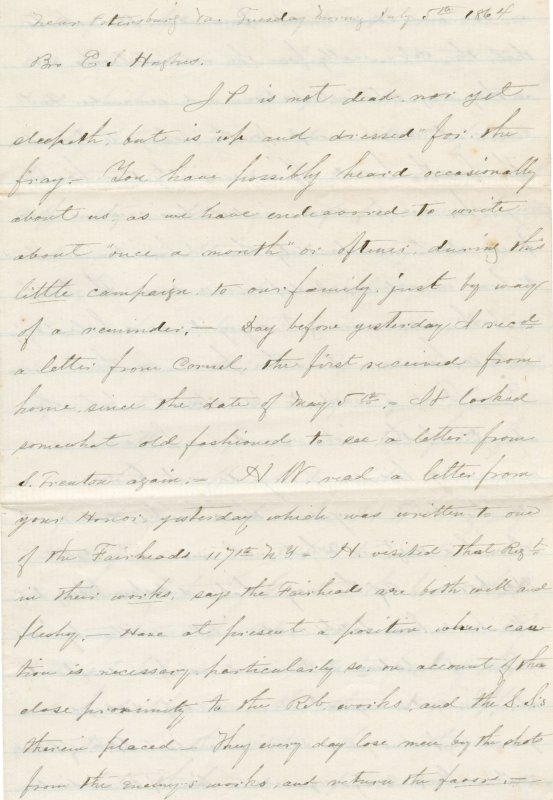 Near Petersburg Va. Tuesday Morng July 5th 1864
Bro E I Hughes.
J P is not dead nor yet
sleepeth, but is "up and dressed" for the
fray.- You have possibly heard occasionally
about us, as we have endeavored to write
about "once a month" or oftener, during this
little campaign, to our family, just by way
of a reminder.- Day before yesterday I recd
a letter from Cornel, the first received from
home, since the date of May 5th.- It looked
somewhat old fashioned to see a letter from
S. Trenton again.- H W. read a letter from
your Honor, yesterday which was written to one
of the Fairheads 117th N Y - H. visited that Regt
in their works, says the Fairheads are both well and
fleshy.- Have at present a position, where cau
tion is necessary, particularly so, on account of the
close proximity to the Reb. works, and the S.S.s
therein placed - They every day lose men by the shots
from the enemy's works, and return the favor.-